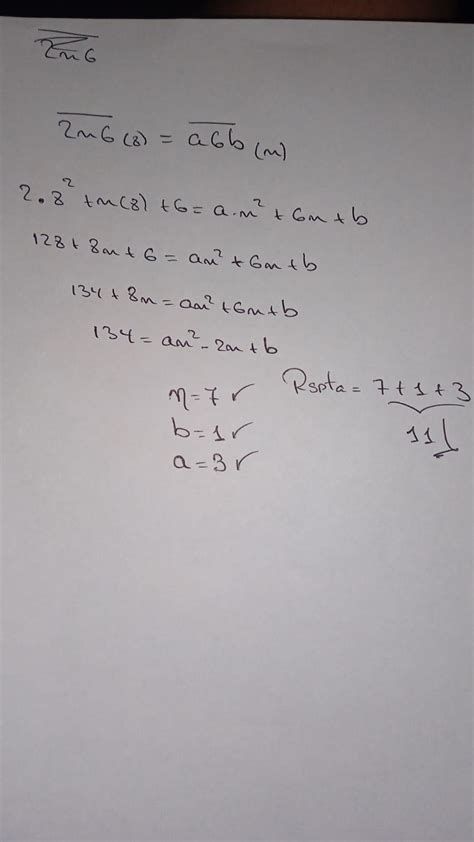 2n6
2n6(8) = a6b(n)
2.8² + n(8) + 6 = a.n² + 6n + b
128 + 8n + 6 = an² + 6n + b
134 + 8n = an² + 6n + b
134 = an² - 2n + b
n = 7 ✓
b = 1 ✓
a = 3 ✓
Rspta = 7 + 1 + 3
11